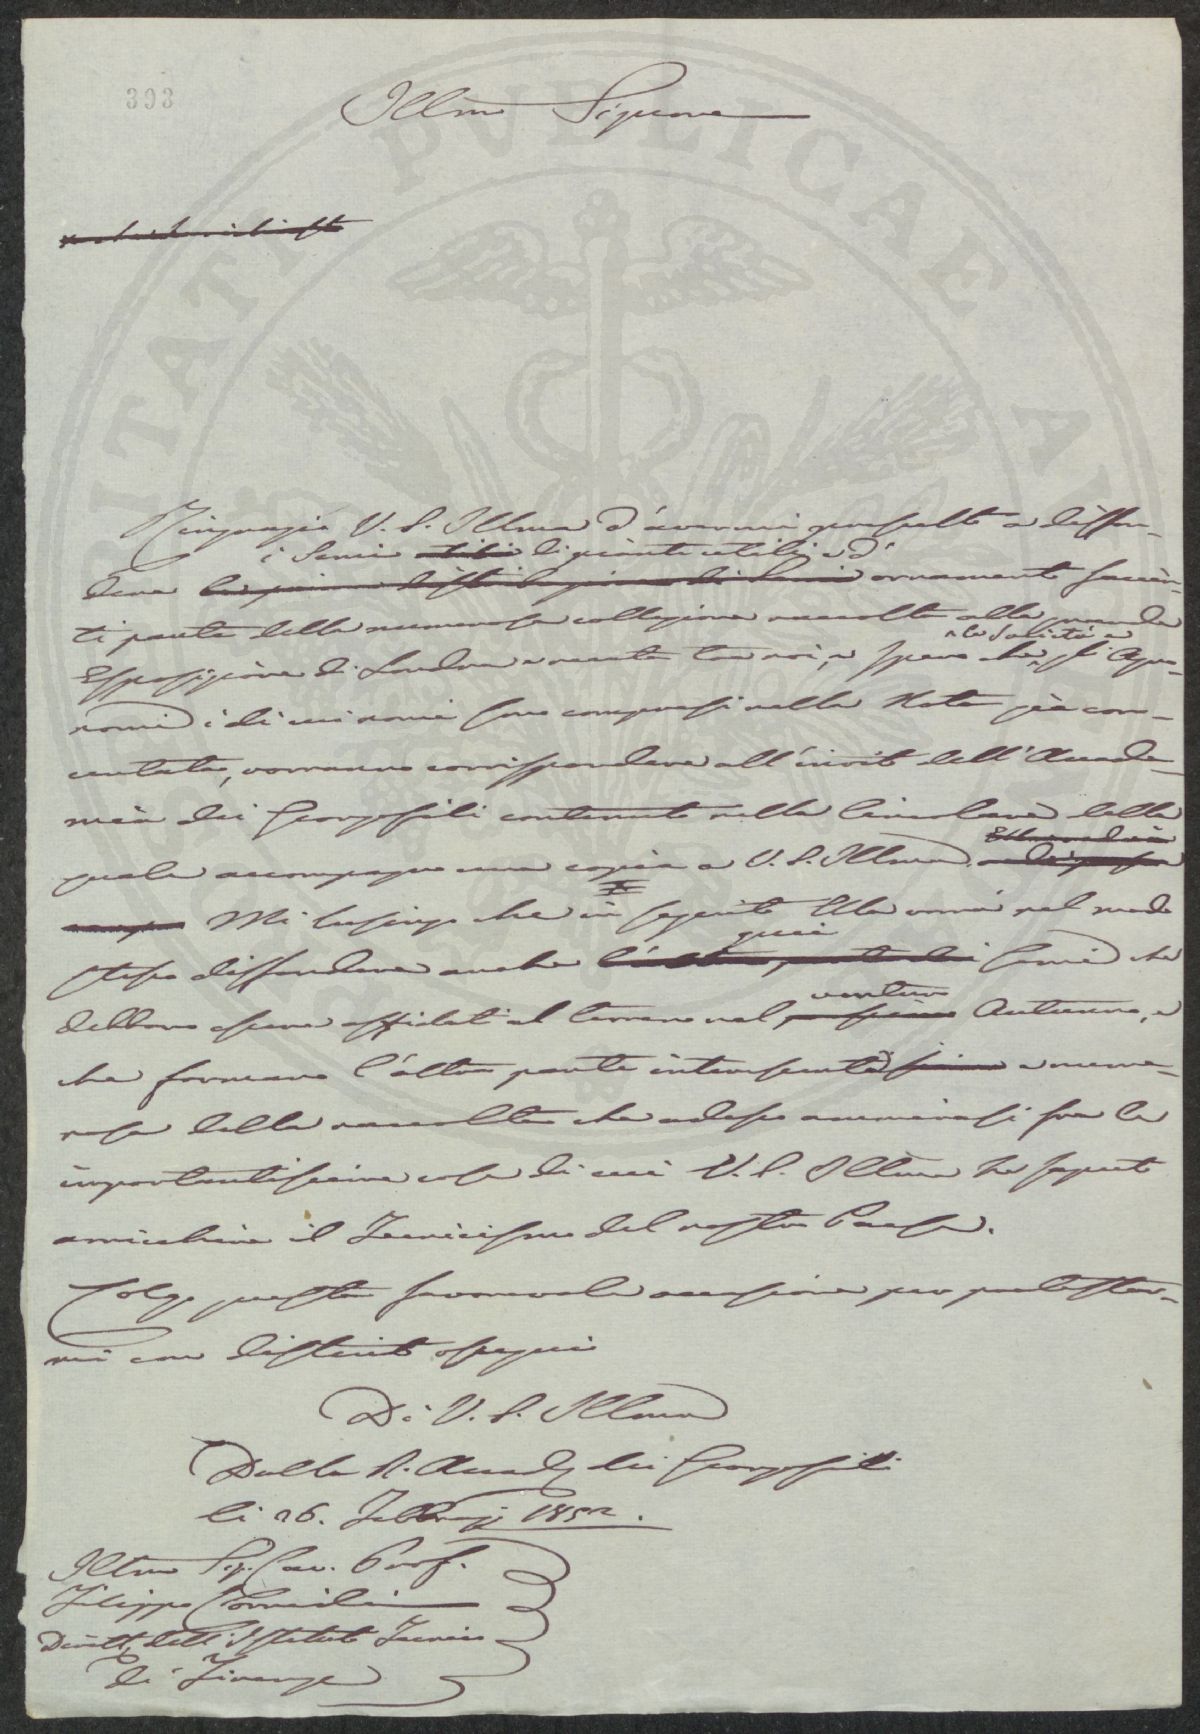 393
Illmo Signore
Ringrazio V. S. Illma d'avermi prescelto a diffon-
i Semi utili di piante utili e d'
dere ornamento facien-
ti parte della numerosa collezione raccolta alla grande
e la Società e
Esposizione di Londra e recata tra noi, e spero che gli Agro-
nomi i di cui nomi sono compresi nella Nota già con-
certata, vorranno corrispondere all'invito dell'Accade-
mia dei Georgofili contenuto nella Circolare della
quale accompagno una copia a V. S. Illma
Mi lusingo che in seguito Ella vorrà nel modo
quei
stesso diffondere anche Semi che
venturo
debbono essere affidati al terreno nel Autunno, e
che formano l'altra parte interessante e nume-
rosa della raccolta che adesso ammirasi fra le
importantissime cose di cui V. S. Illma ha saputo
arricchire il Tecnicismo del nostro Paese.
Colgo questa favorevole occasione per protestar-
mi con distinto ossequio
Di V. S. Illma
Dalla R. Accad. dei Georgofili
li 26. Febbraio 1852.
Illmo Sig. Cav. Prof.
Filippo Corridi
Dirett. dell'Istituto Tecnico
di Firenze